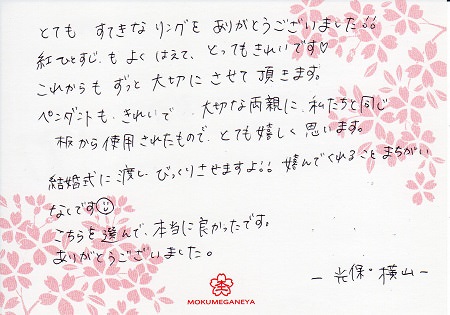 とても すてきな リングを ありがとうございました!!
紅ひとすじ も よく はえて、とってもきれいです♡
これからも ずっと 大切に させて 頂きます。
ペンダントも、きれいで 大切な両親に、私たちと同じ
板から使用されたもので、とても嬉しく思います。
結婚式に渡し びっくりさせますよ!! 嬉んでくれること まちがい
なしです☺
こちらを選んで、本当に良かったです。
ありがとうございました。
ー光保・横山ー
MOKUMEGANEYA